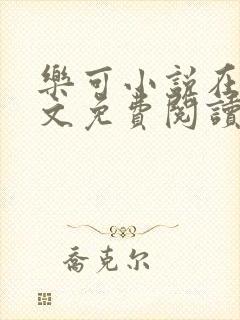 樂可小說在
文免費閱讀
喬克尔